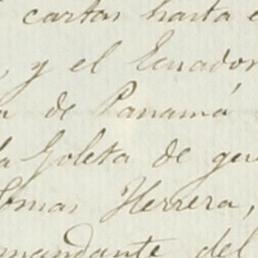 cartas hasta e
, y el Ecuador
de Panamá
la Goleta de gue
Tomas Herrera,
mandante del